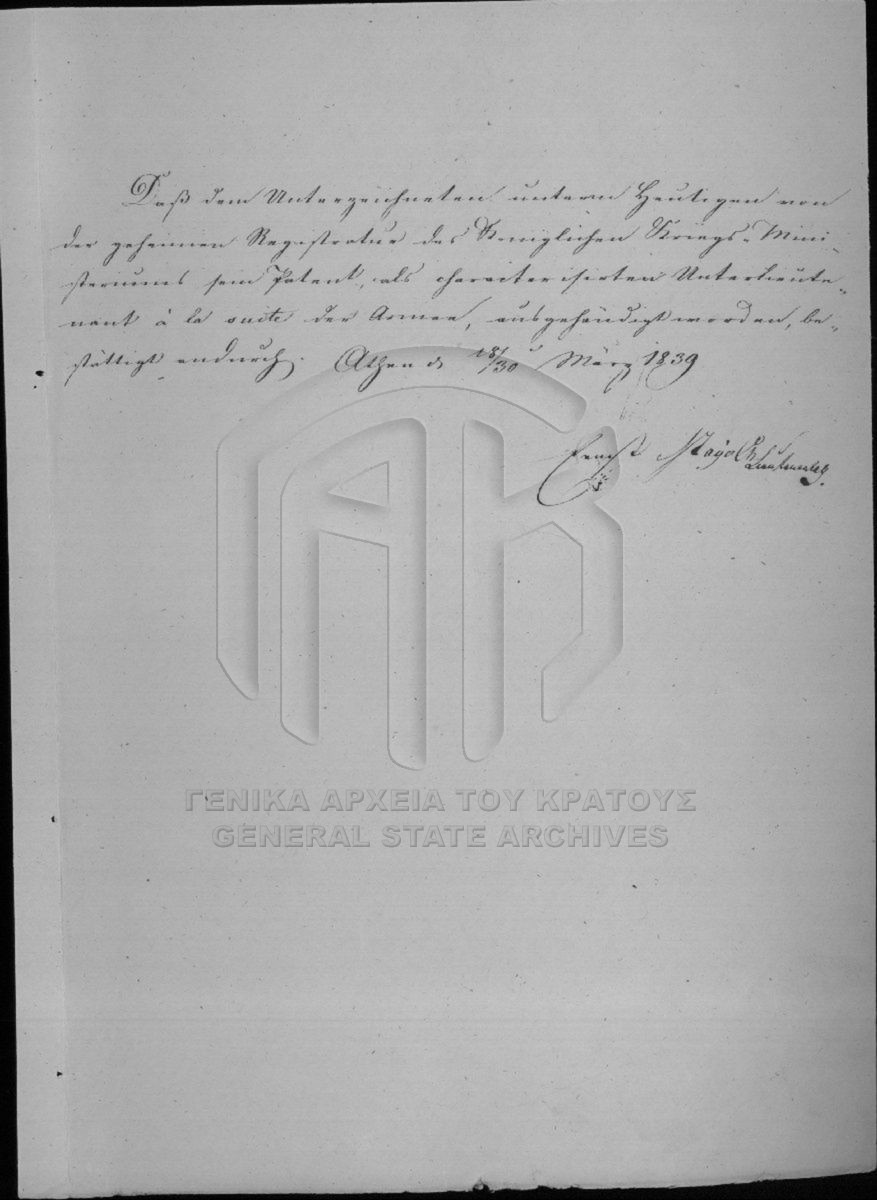 Daß dem Unterzeichneten untern Heutigen von
der geheimen Registratur des Königlichen Kriegs-Mini-
steriums sein Patent, als characterisirten Unterlieute-
nant à la suite der Armee, ausgehändigt worden, be-
stättigt andurch. Athen d 18/30 März 1839
Ernst
ΓΕΝΙΚΑ ΑΡΧΕΙΑ ΤΟΥ ΚΡΑΤΟΥΣ
GENERAL STATE ARCHIVES